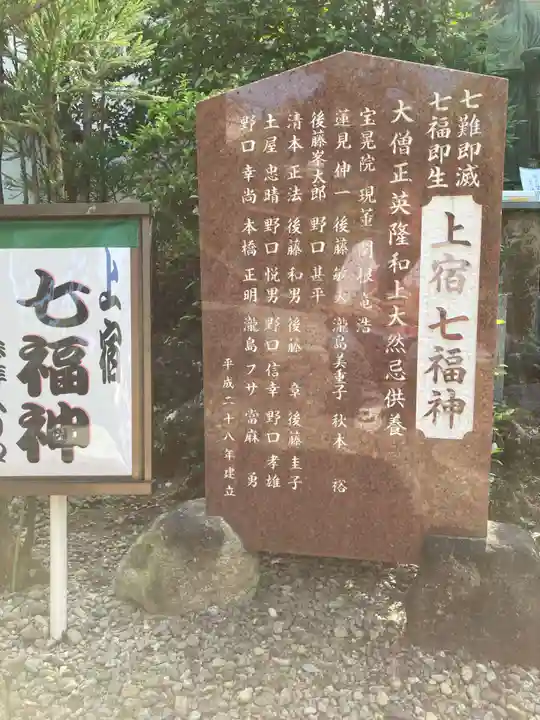 七難即滅
七福即生
上宿 七福神
大僧正英隆和上大然忌供養
宝晃院 現董 関根 竜浩
蓮見 伸一 後藤 敏夫 瀧島美重子 秋本 裕
後藤峯太郎 野口 甚平
清本 正法 後藤 和男 後藤 章 後藤 圭子
土屋 忠晴 野口 悦男 野口 信幸 野口 孝雄
野口 幸尚 本橋 正明 瀧島 フサ 當麻 勇
平成二十八年建立
上宿
七福神